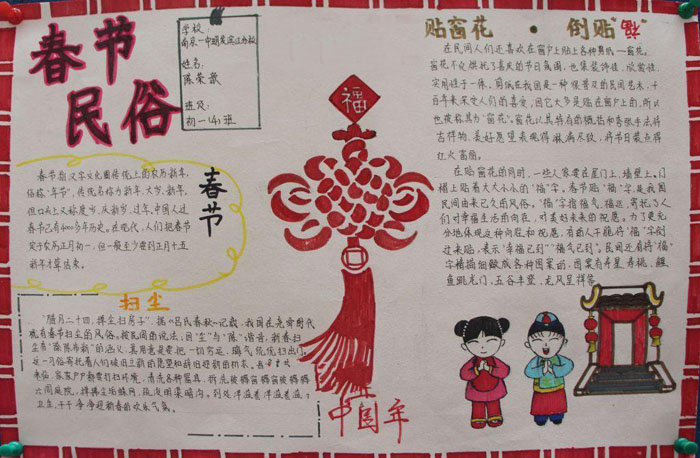 春节
民俗
学校:
南京一中明发滨江分校
姓名:
陈荣
班级:
初一(4)班
春节指汉字文化圈传统上的农历新年,
俗称“年节”,传统名称为新年、大岁、新年,
但口头上又称度岁、庆新岁、过年,中国人过
春节已有4000多年历史。在现代,人们把春节
定于农历正月初一,但一般至少要到正月十五
新年才算结束。
春节
扫尘
“腊月二十四,掸尘扫房子”,据《吕氏春秋》记载,我国在尧舜时代
就有春节扫尘的风俗。按民间的说法:因“尘”与“陈”谐音,新春扫
尘有“除陈布新”的涵义,其用意是要把一切穷运、晦气统统扫出门。
这一习俗寄托着人们破旧立新的愿望和辞旧迎新的祈求。
来临,家家户户都要打扫环境,清洗各种器具,拆洗被褥窗
六闾庭院,掸拂尘垢蛛网,疏浚明渠暗沟。到处洋溢着
卫生、干干净净迎新春的欢乐气氛。
福
中国年
贴窗花·倒贴“福”
在民间人们还喜欢在窗户上贴上各种剪纸—窗花。
窗花不仅烘托了喜庆的节日氛围,也集装饰性、欣赏性、
实用性于一体。剪纸在我国是一种很普及的民间艺术,千
百年来深受人们的喜爱,因它大多是贴在窗户上的,所以
也被称其为“窗花”。窗花以其特有的概括和夸张手法将
吉祥物、美好愿望表现得淋漓尽致,将节日装点得
红火富丽。
在贴窗花的同时,一些人家要在屋门上、墙壁上、门
楣上贴着大大小小的“福”字。春节贴“福”字,是我国
民间由来已久的风俗。“福”字指福气、福运,寄托了人
们对幸福生活的向往,对美好未来的祝愿。为了更充
分地体现这种向往和祝愿,有的人干脆将“福”字倒
过来贴,表示“幸福已到”“福气已到”。民间还有将“福”
字精描细做成各种图案的,图案有寿星、寿桃、鲤
鱼跳龙门、五谷丰登、龙凤呈祥等。